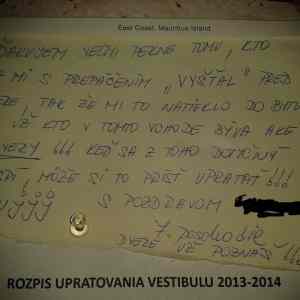 East Coast, Mauritius Island
ĎAKUJEM VEĽMI PEKNE TOMU, KTO
MI S PREPAČENÍM „VYŠŤAL" PRED
TAK ŽE MI TO NATIEKLO DO BYTU
UŽ KTO V TOMTO VCHODE BÝVA AKE
!!! KEĎ SA Z TOHO DOTYČNÝ
MÔŽE SI TO PRÍSŤ UPRATAŤ !!!
S POZDRAVOM
7. POSCHODIE
DVERE UŽ POZNÁŠ !!!
ROZPIS UPRATOVANIA VESTIBULU 2013-2014